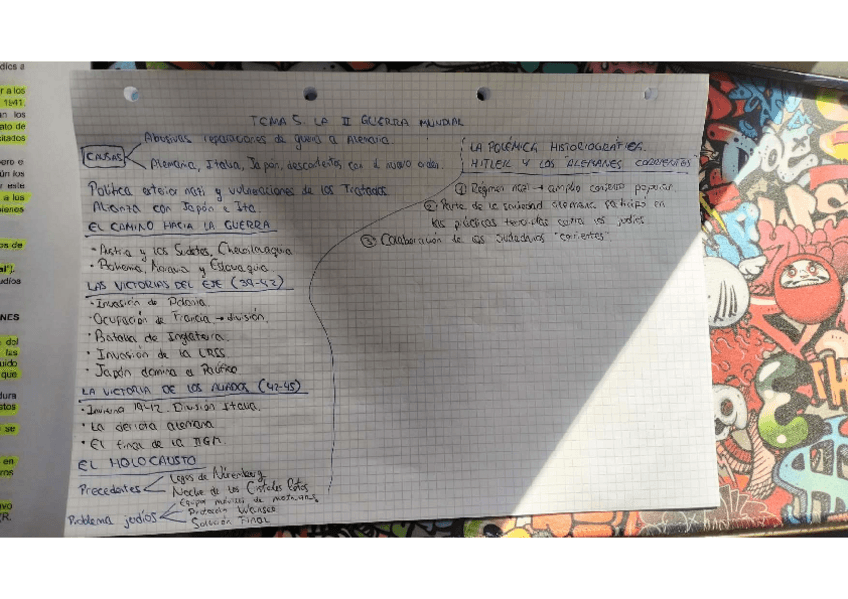 TEMA 5. LA II GUERRA MUNDIAL
CAUSAS
Abusivas reparaciones de guerra a Alemania.
Alemania, Italia, Japón, descontentos con el nuevo orden.
Política exterior nazi y vulneraciones de los Tratados
Alianza con Japón e Ita.
EL CAMINO HACIA LA GUERRA
· Austria y los Sudetes, Checoslovaquia
· Bohemia, Moravia y Eslovaquia
LAS VICTORIAS DEL EJE (39-42)
· Invasión de Polonia.
· Ocupación de Francia → división.
· Batalla de Inglaterra.
· Invasión de la URSS.
· Japón domina el Pacífico
LA VICTORIA DE LOS ALIADOS (42-45)
· Invierno 1942. División Italia.
· La derrota alemana.
· El final de la IIGM.
EL HOLOCAUSTO
Precedentes
Leyes de Núremberg
Noche de los Cristales Rotos
Problema judíos
Equipos móviles de matanzas
Protocolo Wansee
Solución Final
LA POLÉMICA HISTORIOGRÁFICA.
HITLER Y LOS "ALEMANES CORRIENTES"
① Régimen nazi → amplio consenso popular.
② Parte de la sociedad alemana participó en
las prácticas terroristas contra los judíos
③ Colaboración de los ciudadanos "corrientes"
dicos a
r a los
1941,
an los
ato de
sitados
ero e
ún los
r este
a los
bienes
os de
al").
udíos
NES
dol
las
uido
que
dura
stos
se
en
ros
ivo
R.